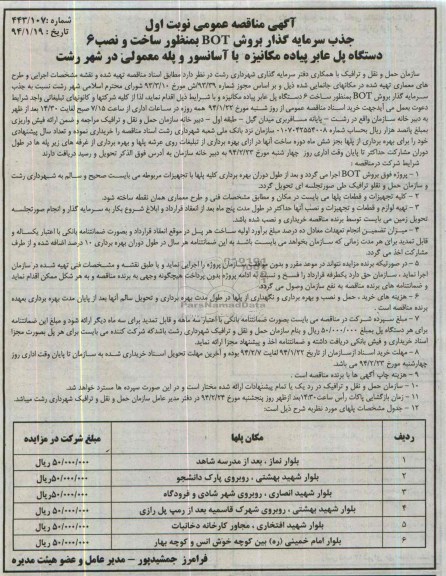 شماره: ۴۴۳/۱۰۷
تاریخ: ۹۴/۱/۱۹
آگهی مناقصه عمومی نوبت اول
جذب سرمایه گذار بروش BOT بمنظور ساخت و نصب ۶
دستگاه پل عابر پیاده مکانیزه با آسانسور و پله معمولی در شهر رشت
سازمان حمل و نقل و ترافیک با همکاری دفتر سرمایه گذاری شهرداری رشت در نظر دارد مطابق اسناد مناقصه تهیه شده و نقشه مشخصات اجرایی و طرح
های معماری تهیه شده در مکانهای جانمایی شده ذیل و بر اساس مجوز شماره ۹۳/۳۹/ش مورخ ۹۳/۲/۱۰ شورای محترم اسلامی شهر رشت نسبت به جذب
سرمایه گذار بروش BOT بمنظور ساخت ۶ دستگاه پل عابر پیاده مکانیزه و با شرایط ذیل اقدام نماید. لذا از کلیه شرکتها و کانونهای تبلیغاتی واجد شرایط
دعوت بعمل می آید جهت خرید اسناد مناقصه عمومی از روز شنبه مورخ ۹۴/۱/۲۲ همه روزه در ساعات اداری از ساعت ۷/۱۵ صبح لغایت ۱۴/۳۰ بعد از ظهر
به دبیر خانه سازمان واقع در رشت – پایانه مسافربری میدان گیل – طبقه اول – دبیر خانه سازمان حمل و نقل و ترافیک مراجعه و ضمن ارائه فیش واریزی
بمبلغ پانصد هزار ریال بحساب شماره ۰۱۰۷۰۴۲۲۵۵۴۰۰۸ سازمان نزد بانک ملی شعبه شهرداری رشت اسناد مناقصه را خریداری نموده و تعداد سال پیشنهادی
خود را برای بهره برداری از پلها بجز شش ماه دوره ساخت آنها در ازای بهره برداری از تبلیغات روی عرشه پلها و بهره برداری از غرفه های زیر پله ها در طول
دوران مشارکت حداکثر تا پایان وقت اداری روز چهار شنبه مورخ ۹۴/۲/۲۳ به دبیر خانه سازمان به آدرس فوق الذکر تحویل و رسید دریافت دارند
شرایط شرکت درمناقصه:
۱ – پروژه فوق بروش BOT اجرا می گردد و بعد از طول دوران بهره برداری کلیه پلها با تجهیزات مربوطه می بایست صحیح و سالم به شهرداری رشت
و سازمان حمل و نقل و ترافیک طی صورتجلسه ای تحویل گردد.
۲ – کلیه تجهیزات و قطعات پلها می بایست در مکان و مطابق مشخصات فنی و طرح معماری همان نقطه ساخته شود.
۳ – تهیه لوازم و قطعات و تجهیزات و نصب آنها حداکثر در طول مدت پنج ماه بعد از انعقاد قرارداد و ابلاغ شروع بکار به سرمایه گذار و انجام صورتجلسه
تحویل زمین می بایست توسط برنده مناقصه خریداری و نصب شده باشد.
۴ – میزان تضمین انجام تعهدات معادل ده درصد مبلغ برآورد اولیه ساخت هر پل در موقع انعقاد قرارداد و بصورت ضمانتنامه بانکی با اعتبار یکساله و
قابل تمدید برای هر مدت زمانی که سازمان بخواهد می بایست باشد به این ضمانتنامه هر سال در طول دوران بهره برداری ۱۰ درصد اضافه شده و از طرف
مشارکت اخذ می گردد.
۵ – در صورتیکه برنده مزایده نتواند در موعد مقرر و بدون موانع پروژه را اجرایی نماید و یا طبق نقشه و مشخصات فنی تهیه شده در سازمان
اجرا نماید، سازمان حق دارد یکطرفه قرارداد را فسخ و نسبت به ادامه پروژه بدون پرداخت هیچگونه وجهی به برنده مناقصه و به هر شکل ممکن اقدام نماید
و ضمانتنامه های برنده مناقصه به نفع سازمان وصول می گردد.
۶ – هزینه های خرید، حمل و نصب و بهره برداری و نگهداری از پلها در طول مدت بهره برداری و تحویل سالم آنها بعد از پایان مدت بهره برداری بعهده
برنده مناقصه است.
۷ – مبلغ سپرده شرکت در مناقصه می بایست بصورت ضمانتنامه بانکی با اعتبار سه ماهه و قابل تمدید برای سه ماه دیگر ارائه شود و مبلغ این ضمانتنامه
برای هر دستگاه پل بمبلغ ۵۰/۰۰۰/۰۰۰ ریال و بنام سازمان حمل و نقل و ترافیک شهرداری رشت باشد که شرکت کننده می بایست برای هر پل بصورت مجزا
اسناد خریداری و فیش بانکی دریافت داشته و ضمانتنامه اخذ و پیشنهاد مجزا ارائه نماید.
۸ – مهلت خرید اسناد از سازمان از تاریخ ۹۴/۱/۲۲ لغایت ۹۴/۲/۷ بوده و آخرین مهلت تحویل اسناد خریداری شده به سازمان تا پایان وقت اداری روز
چهارشنبه مورخ ۹۴/۲/۲۳ می باشد.
۹ – هزینه چاپ آگهی ها با برنده مناقصه است.
۱۰ – سازمان حمل و نقل و ترافیک در رد یک یا تمام پیشنهادات ارائه شده مختار است و در این صورت سپرده ها مسترد خواهد شد.
۱۱ – زمان بازگشایی پاکات رأس ساعت ۱۴/۳۰ بعد از ظهر روز پنجشنبه مورخ ۹۴/۲/۲۴ در دفتر مدیر عامل سازمان حمل و نقل و ترافیک شهرداری رشت میباشد.
۱۲ – جدول مشخصات پلهای مورد نظر به شرح ذیل است:
ردیف مکان پلها مبلغ شرکت در مزایده
۱ بلوار نماز، بعد از مدرسه شاهد ۵۰/۰۰۰/۰۰۰ ریال
۲ بلوار شهید بهشتی، روبروی پارک دانشجو ۵۰/۰۰۰/۰۰۰ ریال
۳ بلوار شهید انصاری، روبروی شهر شادی و فرودگاه ۵۰/۰۰۰/۰۰۰ ریال
۴ بلوار شهید بهشتی، روبروی شهرک قاسمیه بعد از رمپ پل رازی ۵۰/۰۰۰/۰۰۰ ریال
۵ بلوار شهید افتخاری، مجاور کارخانه دخانیات ۵۰/۰۰۰/۰۰۰ ریال
۶ بلوار امام خمینی (ره) بین کوچه خوش انس و کوچه بهار ۵۰/۰۰۰/۰۰۰ ریال
فرامرز جمشیدپور – مدیر عامل و عضو هیئت مدیره